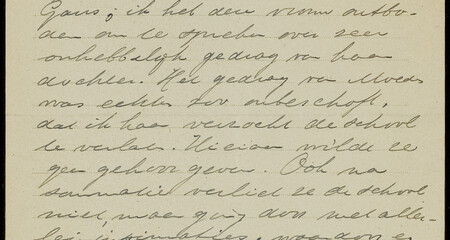 Gans; ik heb den vrouw ontbo-
den om te spreken over zeer
onhebbelijk gedrag van haar
dochter. Het gedrag van Moeder
was echter zoo onbeschoft,
dat ik haar verzocht de school
te verlaten. Hieraan wilde ze
geen gehoor geven. Ook na
sommatie verliet ze de school
niet, maar ging door met aller-
lei insinuaties, waardoor er